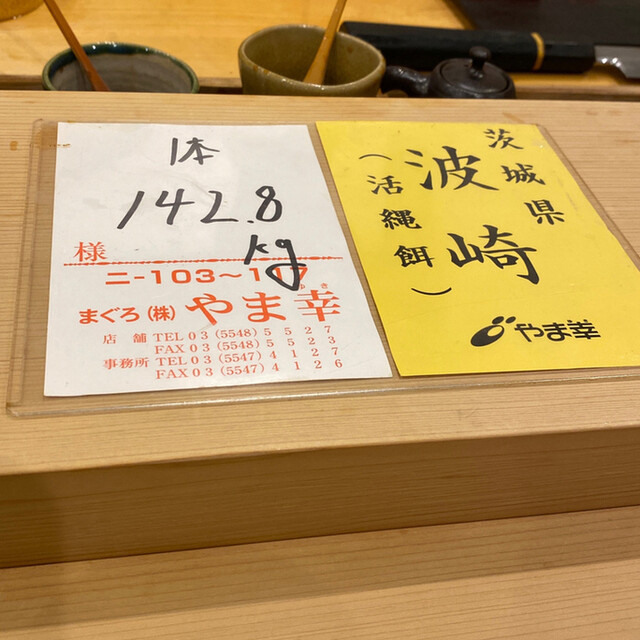 1本
142.8
kg
様
ニ-103〜107
まぐろ(株)やま幸
ゆき
店舗 TEL03(5548)5527
FAX03(5548)5523
事務所 TEL03(5547)4127
FAX03(5547)4126
茨城県
波崎
(活縄餌)
やま幸